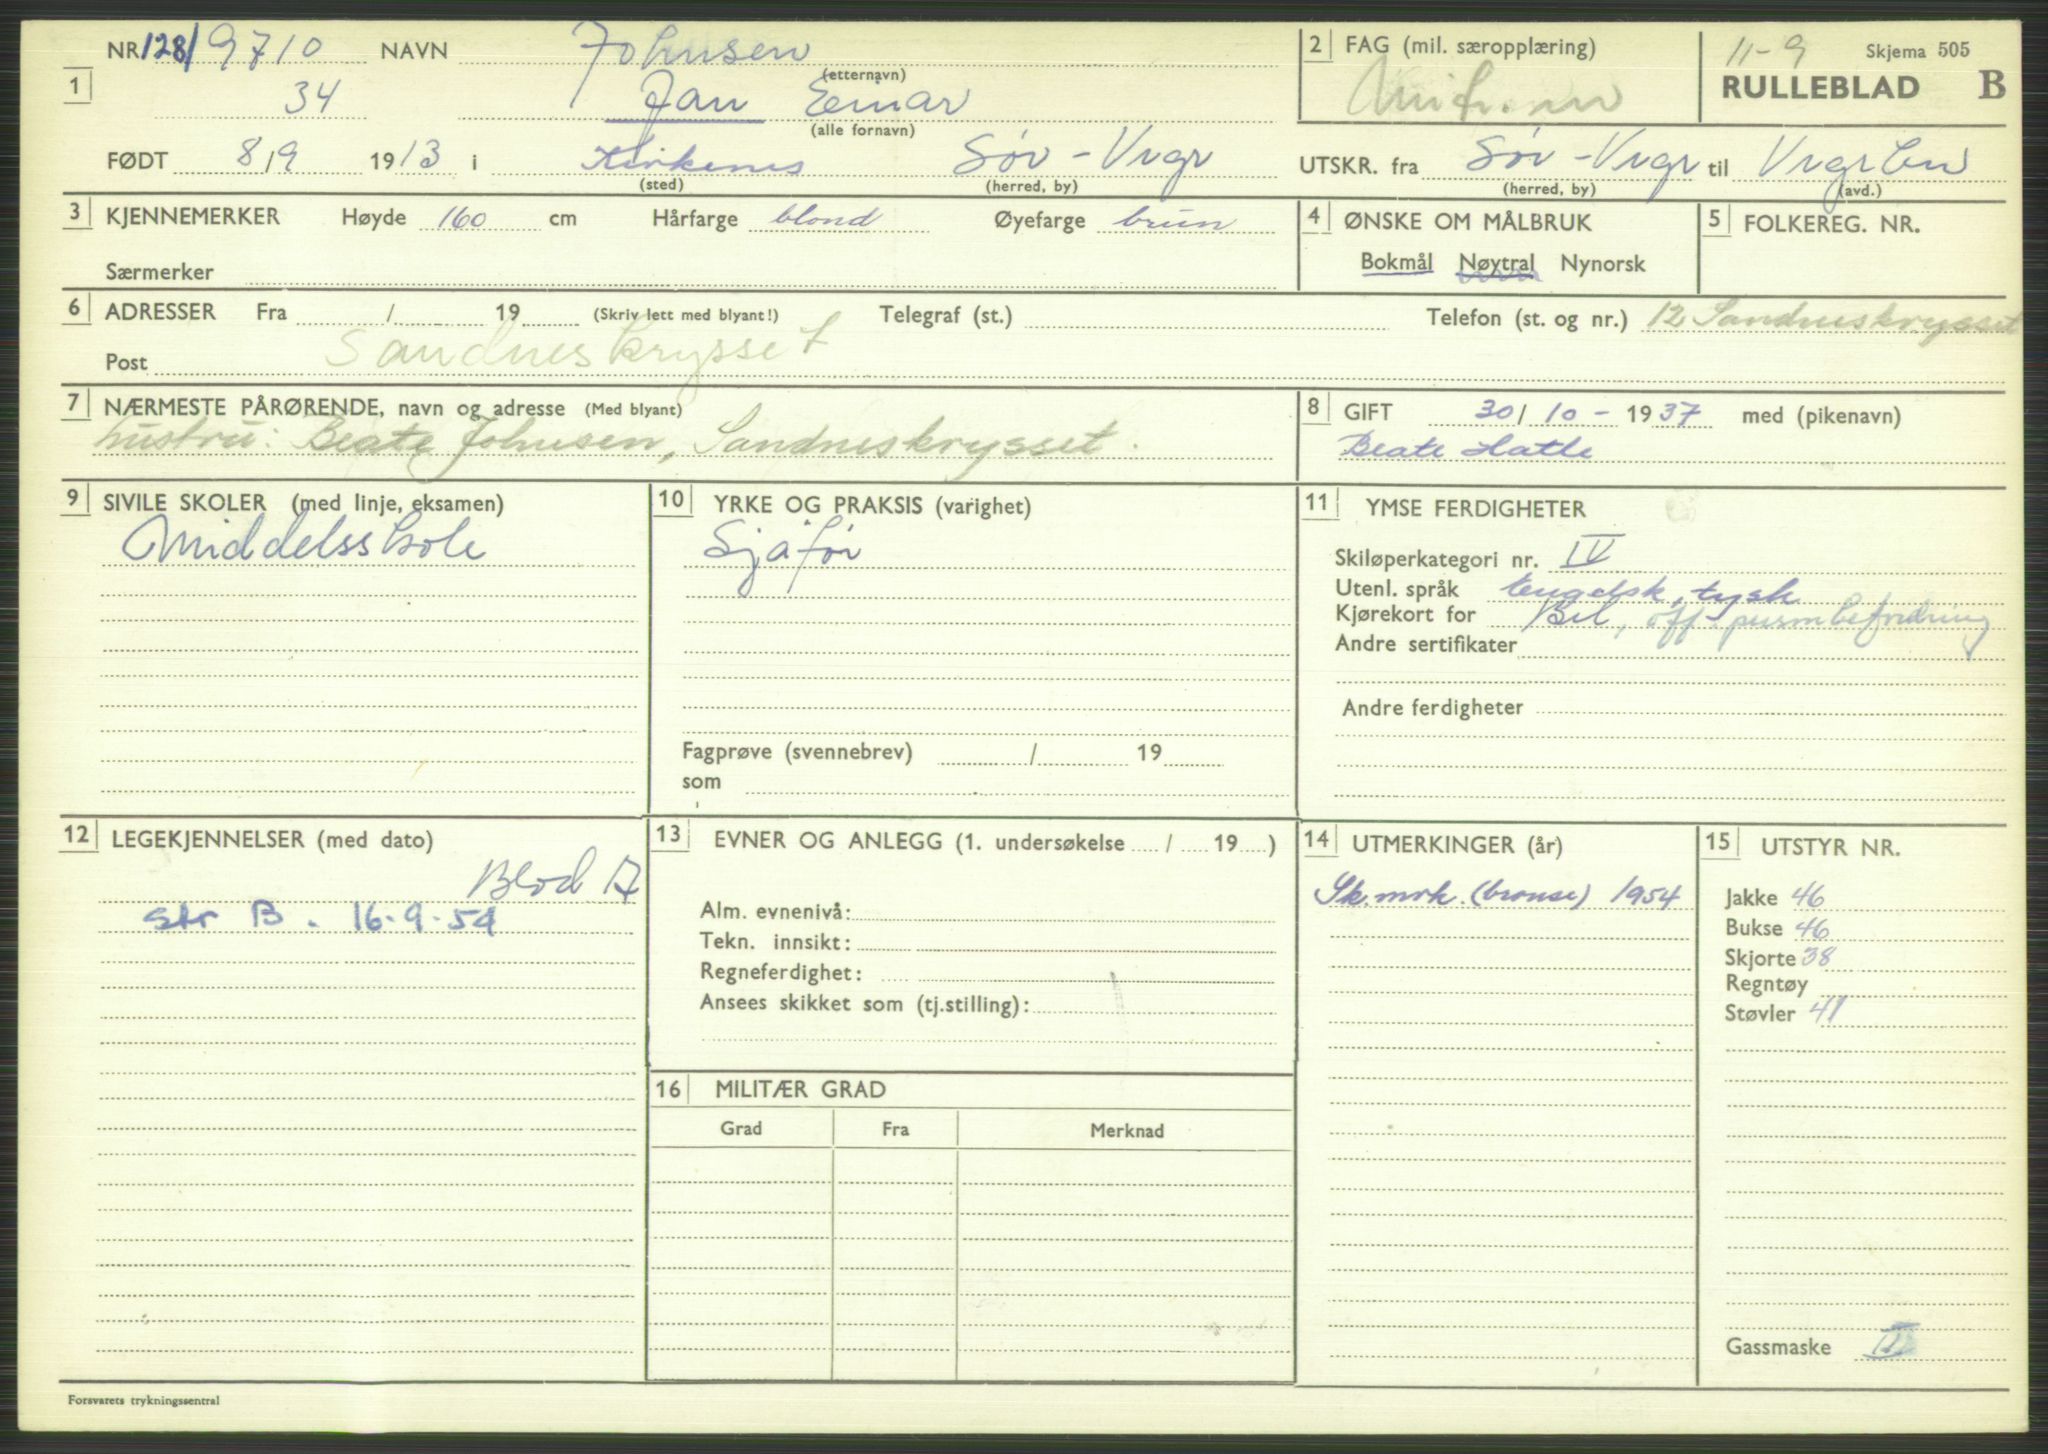 NR 128/9710 NAVN Johnsen 2 FAG (mil. særopplæring) 11-9 Skjema 505
(etternavn) RULLEBLAD B
1 34 Jan Einar
(alle fornavn)
FØDT 8/9 1913 i Kirkenes Sør-Vrgr UTSKR. fra Sør-Vrgr til
(sted) (herred, by) (herred, by) (avd.)
3 KJENNEMERKER Høyde 160 cm Hårfarge blond Øyefarge brun 4 ØNSKE OM MÅLBRUK 5 FOLKEREG. NR.
Særmerker Bokmål Nøytral Nynorsk
6 ADRESSER Fra / 19 (Skriv lett med blyant!) Telegraf (st.) Telefon (st. og nr.) 12 Sandneskrysset
Post Sandneskrysset
7 NÆRMESTE PÅRØRENDE, navn og adresse (Med blyant) 8 GIFT 30/10-1937 med (pikenavn)
hustru: Beate Johnsen, Sandneskrysset. Beate Hatle
9 SIVILE SKOLER (med linje, eksamen) 10 YRKE OG PRAKSIS (varighet) 11 YMSE FERDIGHETER
Middelsskole Sjåfør
Skiløperkategori nr. IV
Utenl. språk engelsk, tysk
Kjørekort for Bil, off. personbefordring
Andre sertifikater
Andre ferdigheter
Fagprøve (svennebrev) / 19
som
12 LEGEKJENNELSER (med dato) 13 EVNER OG ANLEGG (1. undersøkelse / 19 ) 14 UTMERKINGER (år) 15 UTSTYR NR.
Blod A Sk.mrk. (bronse) 1954 Jakke 46
str B. 16-9-54 Alm. evnenivå: Bukse 46
Tekn. innsikt: Skjorte 38
Regneferdighet: Regntøy
Ansees skikket som (tj.stilling): Støvler 41
16 MILITÆR GRAD
Grad Fra Merknad
Gassmaske II
Forsvarets trykningssentral